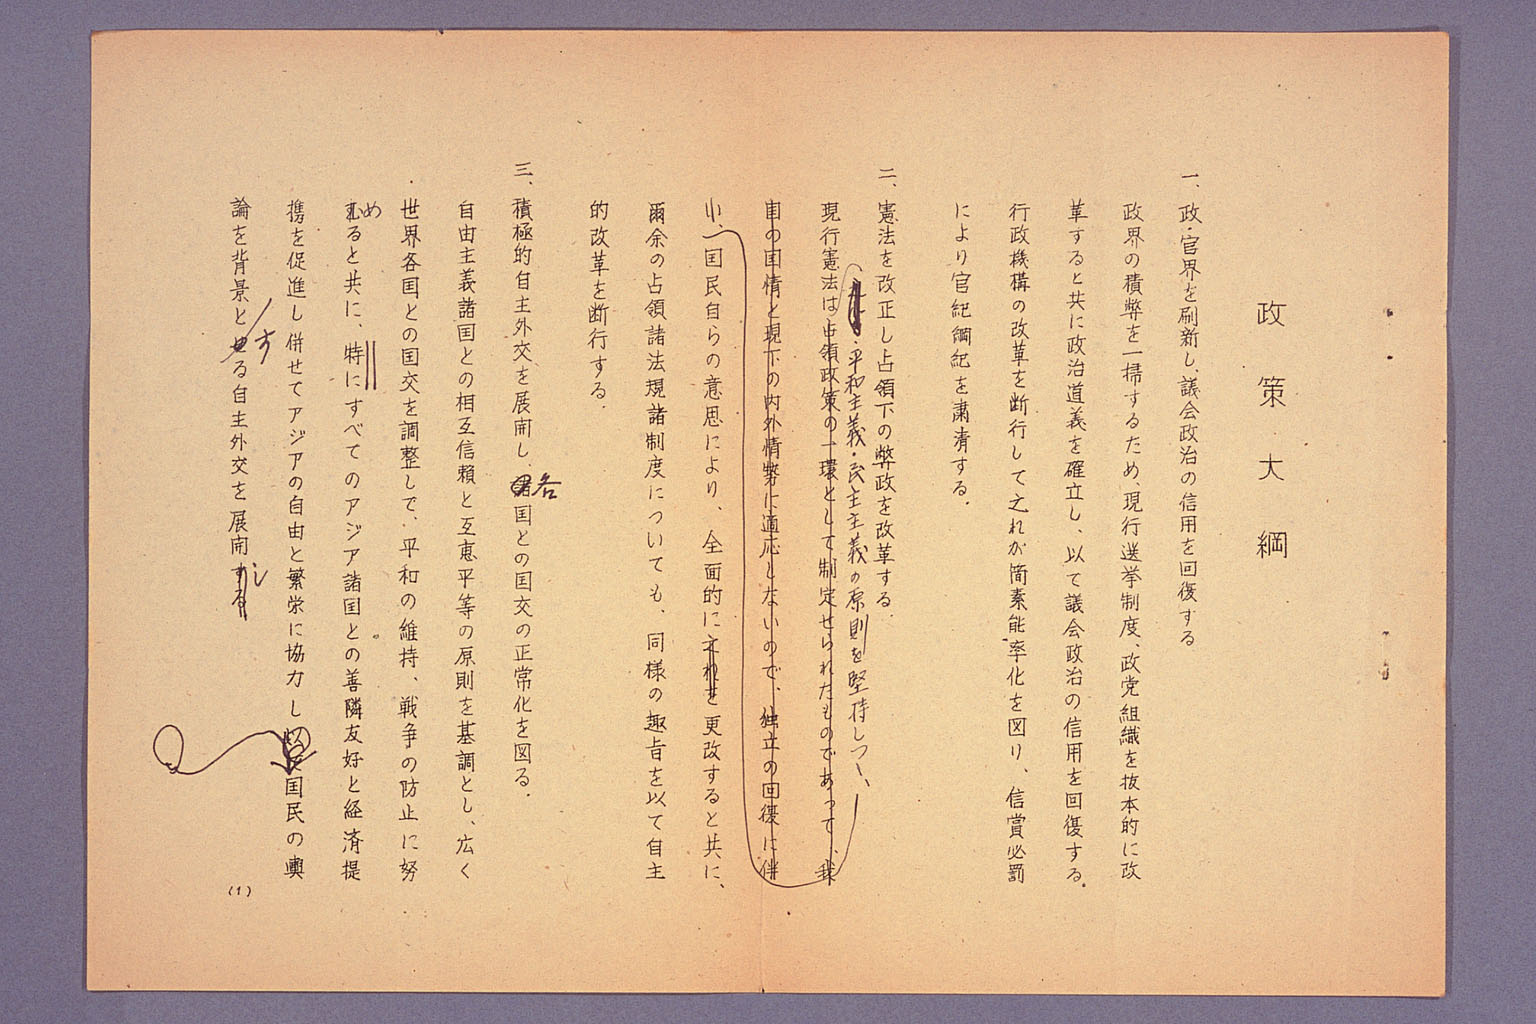 政策大綱
一、政・官界を刷新し、議会政治の信用を回復する
政界の積弊を一掃するため、現行選挙制度、政党組織を抜本的に改
革すると共に政治道義を確立し、以て議会政治の信用を回復する。
行政機構の改革を断行して之れが簡素能率化を図り、信賞必罰
により官紀綱紀を粛清する。
二、憲法を改正し占領下の弊政を改革する
平和主義・民主主義の原則を堅持しつゝ、
現行憲法は占領政策の一環として制定せられたものであって、我
国の国情と現下の内外情勢に適応しないので、独立の回復に伴
い、国民自らの意思により、全面的に之れを更改すると共に、
爾余の占領諸法規諸制度についても、同様の趣旨を以て自主
的改革を断行する。
三、積極的自主外交を展開し、各国との国交の正常化を図る。
自由主義諸国との相互信頼と互恵平等の原則を基調とし、広く
世界各国との国交を調整して、平和の維持、戦争の防止に努
むめると共に、特にすべてのアジア諸国との善隣友好と経済提
携を促進し併せてアジアの自由と繁栄に協力し国民の輿
論を背景とせする自主外交を展開するし
(1)